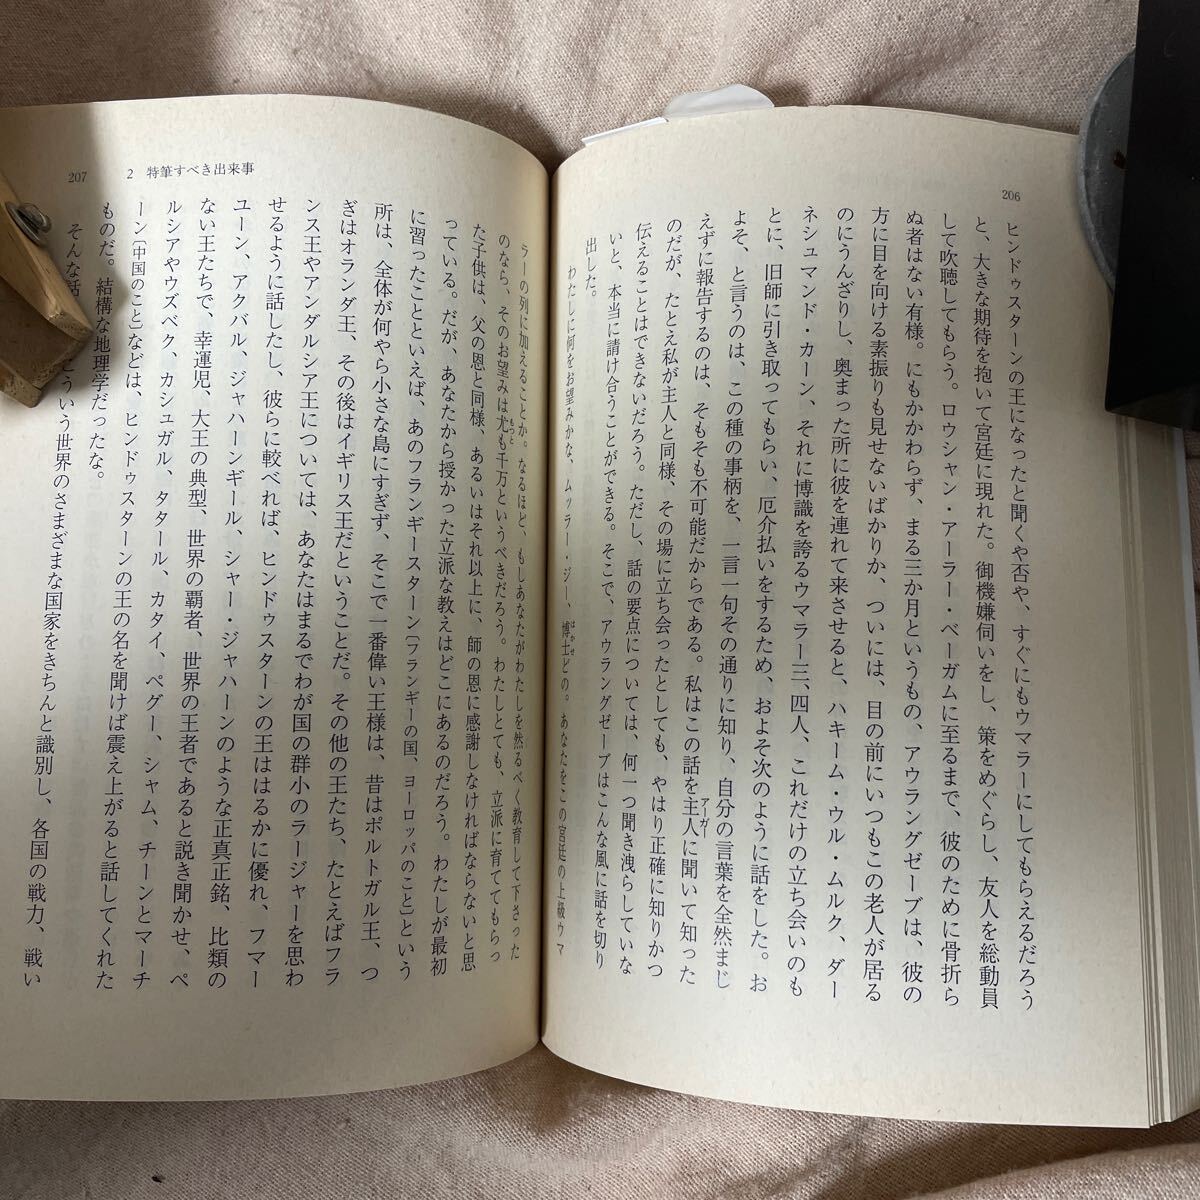 206
ヒンドゥスターンの王になったと聞くや否や、すぐにもウマラーにしてもらえるだろう
と、大きな期待を抱いて宮廷に現れた。御機嫌伺いをし、策をめぐらし、友人を総動員
して吹聴してもらう。ロウシャン・アーラー・ベーガムに至るまで、彼のために骨折ら
ぬ者はない有様。にもかかわらず、まる三か月というもの、アウラングゼーブは、彼の
方に目を向ける素振りも見せないばかりか、ついには、目の前にいつもこの老人が居る
のにうんざりし、奥まった所に彼を連れて来させると、ハキーム・ウル・ムルク、ダー
ネシュマンド・カーン、それに博識を誇るウマラー三、四人、これだけの立ち会いのも
とに、旧師に引き取ってもらい、厄介払いをするため、およそ次のように話をした。お
よそ、と言うのは、この種の事柄を、一言一句その通りに知り、自分の言葉を全然まじ
えずに報告するのは、そもそも不可能だからである。私はこの話を主人アーガーに聞いて知った
のだが、たとえ私が主人と同様、その場に立ち会ったとしても、やはり正確に知りかつ
伝えることはできないだろう。ただし、話の要点については、何一つ聞き洩らしていな
いと、本当に請け合うことができる。そこで、アウラングゼーブはこんな風に話を切り
出した。
わたしに何をお望みかな、ムッラー・ジー、博士はかせどの。あなたをこの宮廷の上級ウマ
207
2 特筆すべき出来事
ラーの列に加えることか。なるほど、もしあなたがわたしを然るべく教育して下さった
のなら、そのお望みは尤もっとも千万というべきだろう。わたしとても、立派に育ててもらっ
た子供は、父の恩と同様、あるいはそれ以上に、師の恩に感謝しなければならないと思
っている。だが、あなたから授かった立派な教えはどこにあるのだろう。わたしが最初
に習ったことといえば、あのフランギースターン〔フランギーの国、ヨーロッパのこと〕という
所は、全体が何やら小さな島にすぎず、そこで一番偉い王様は、昔はポルトガル王、つ
ぎはオランダ王、その後はイギリス王だということだ。その他の王たち、たとえばフラ
ンス王やアンダルシア王については、あなたはまるでわが国の群小のラージャーを思わ
せるように話したし、彼らに較べれば、ヒンドゥスターンの王ははるかに優れ、フマー
ユーン、アクバル、ジャハーンギール、シャー・ジャハーンのような正真正銘、比類の
ない王たちで、幸運児、大王の典型、世界の覇者、世界の王者であると説き聞かせ、ペ
ルシアやウズベク、カシュガル、タタール、カタイ、ペグー、シャム、チーンとマーチ
ーン〔中国のこと〕などは、ヒンドゥスターンの王の名を聞けば震え上がると話してくれた
ものだ。結構な地理学だったな。
そんな話
ういう世界のさまざまな国家をきちんと識別し、各国の戦力、戦い